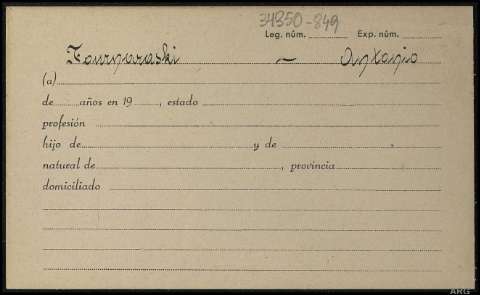 34350-849
Leg. núm. Exp. núm.
Fournaraski — Antonio
(a)
de años en 19 , estado
profesión
hijo de y de
natural de , provincia
domiciliado
ARG